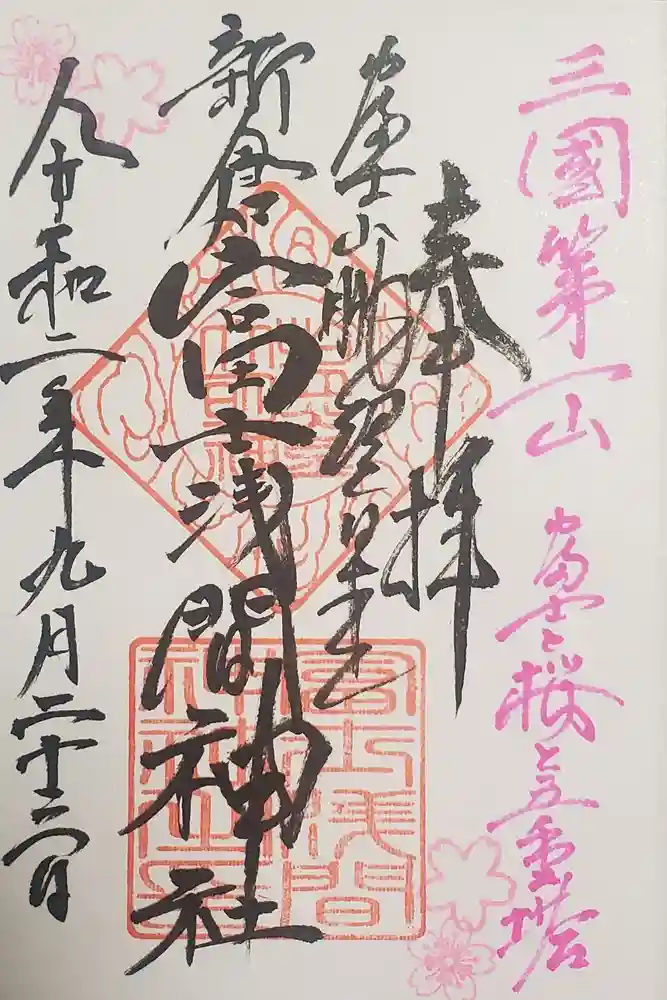 三國第一山
富士と桜と五重塔
奉拝
富士山眺望日本一
新倉富士浅間神社
令和二年九月二十二日
富士浅間
神社